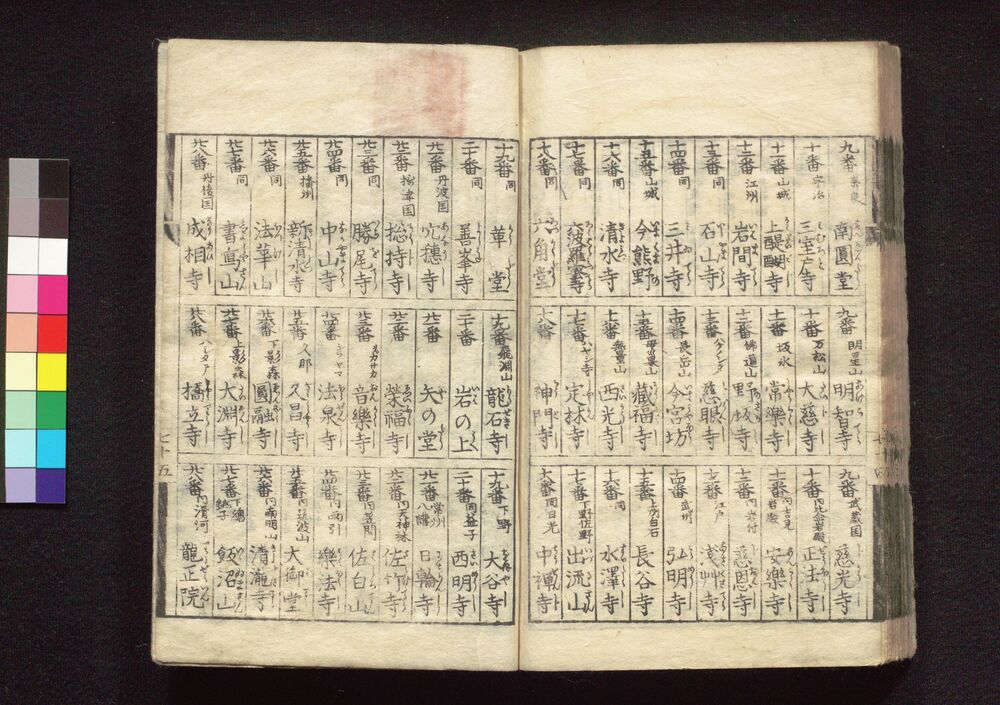 九番 南圓堂
十番 宇治 三室戸寺
十一番 山城 上醍醐寺
十二番 江州 岩間寺
十三番 同 石山寺
十四番 同 三井寺
十五番 山城 今熊野
十六番 同 清水寺
十七番 同 六波羅蜜寺
十八番 同 六角堂
九番 明星山 明智寺
十番 万松山 大慈寺
十一番 坂氷 常樂寺
十二番 佛道山 野坂寺
十三番 慈眼寺
十四番 長岳山 今宮坊
十五番 藏福寺
十六番 無量山 西光寺
十七番 ハヤシ寺 定林寺
十八番 神門寺
九番 武蔵国 慈光寺
十番 内比企岩殿 正法寺
十一番 内吉見岩殿 安樂寺
十二番 内岩付 慈恩寺
十三番 江戸 浅艸寺
十四番 武州 弘明寺
十五番 上州白石 長谷寺
十六番 同 水澤寺
十七番 下野佐野 出流山
十八番 同日光 中禅寺
十九番 同 革堂
二十番 同 善峯寺
廿一番 丹波国 穴穗寺
廿二番 摂津国 総持寺
廿三番 同 勝尾寺
廿四番 同 中山寺
廿五番 播州 新清水寺
廿六番 同 法華山
廿七番 同 書寫山
廿八番 丹後国 成相寺
十九番 飛淵山 龍石寺
二十番 岩の上
廿一番 矢の堂
廿二番 榮福寺
廿三番 ヲカサカ 音樂寺
廿四番 シラヤマ 法泉寺
廿五番 久那 久昌寺
廿六番 下影森 圓融寺
廿七番 上影森 大淵寺
廿八番 ハシダテ 橋立寺
十九番 下野 大谷寺
二十番 同益子 西明寺
廿一番 常州八溝 日輪寺
廿二番 内天神林 佐竹寺
廿三番 内笠間 佐白山
廿四番 内雨引 樂法寺
廿五番 内筑波山 大御堂
廿六番 内南明山 清瀧寺
廿七番 下総銚子 飯沼山
廿八番 内滑河 龍正院
七十五